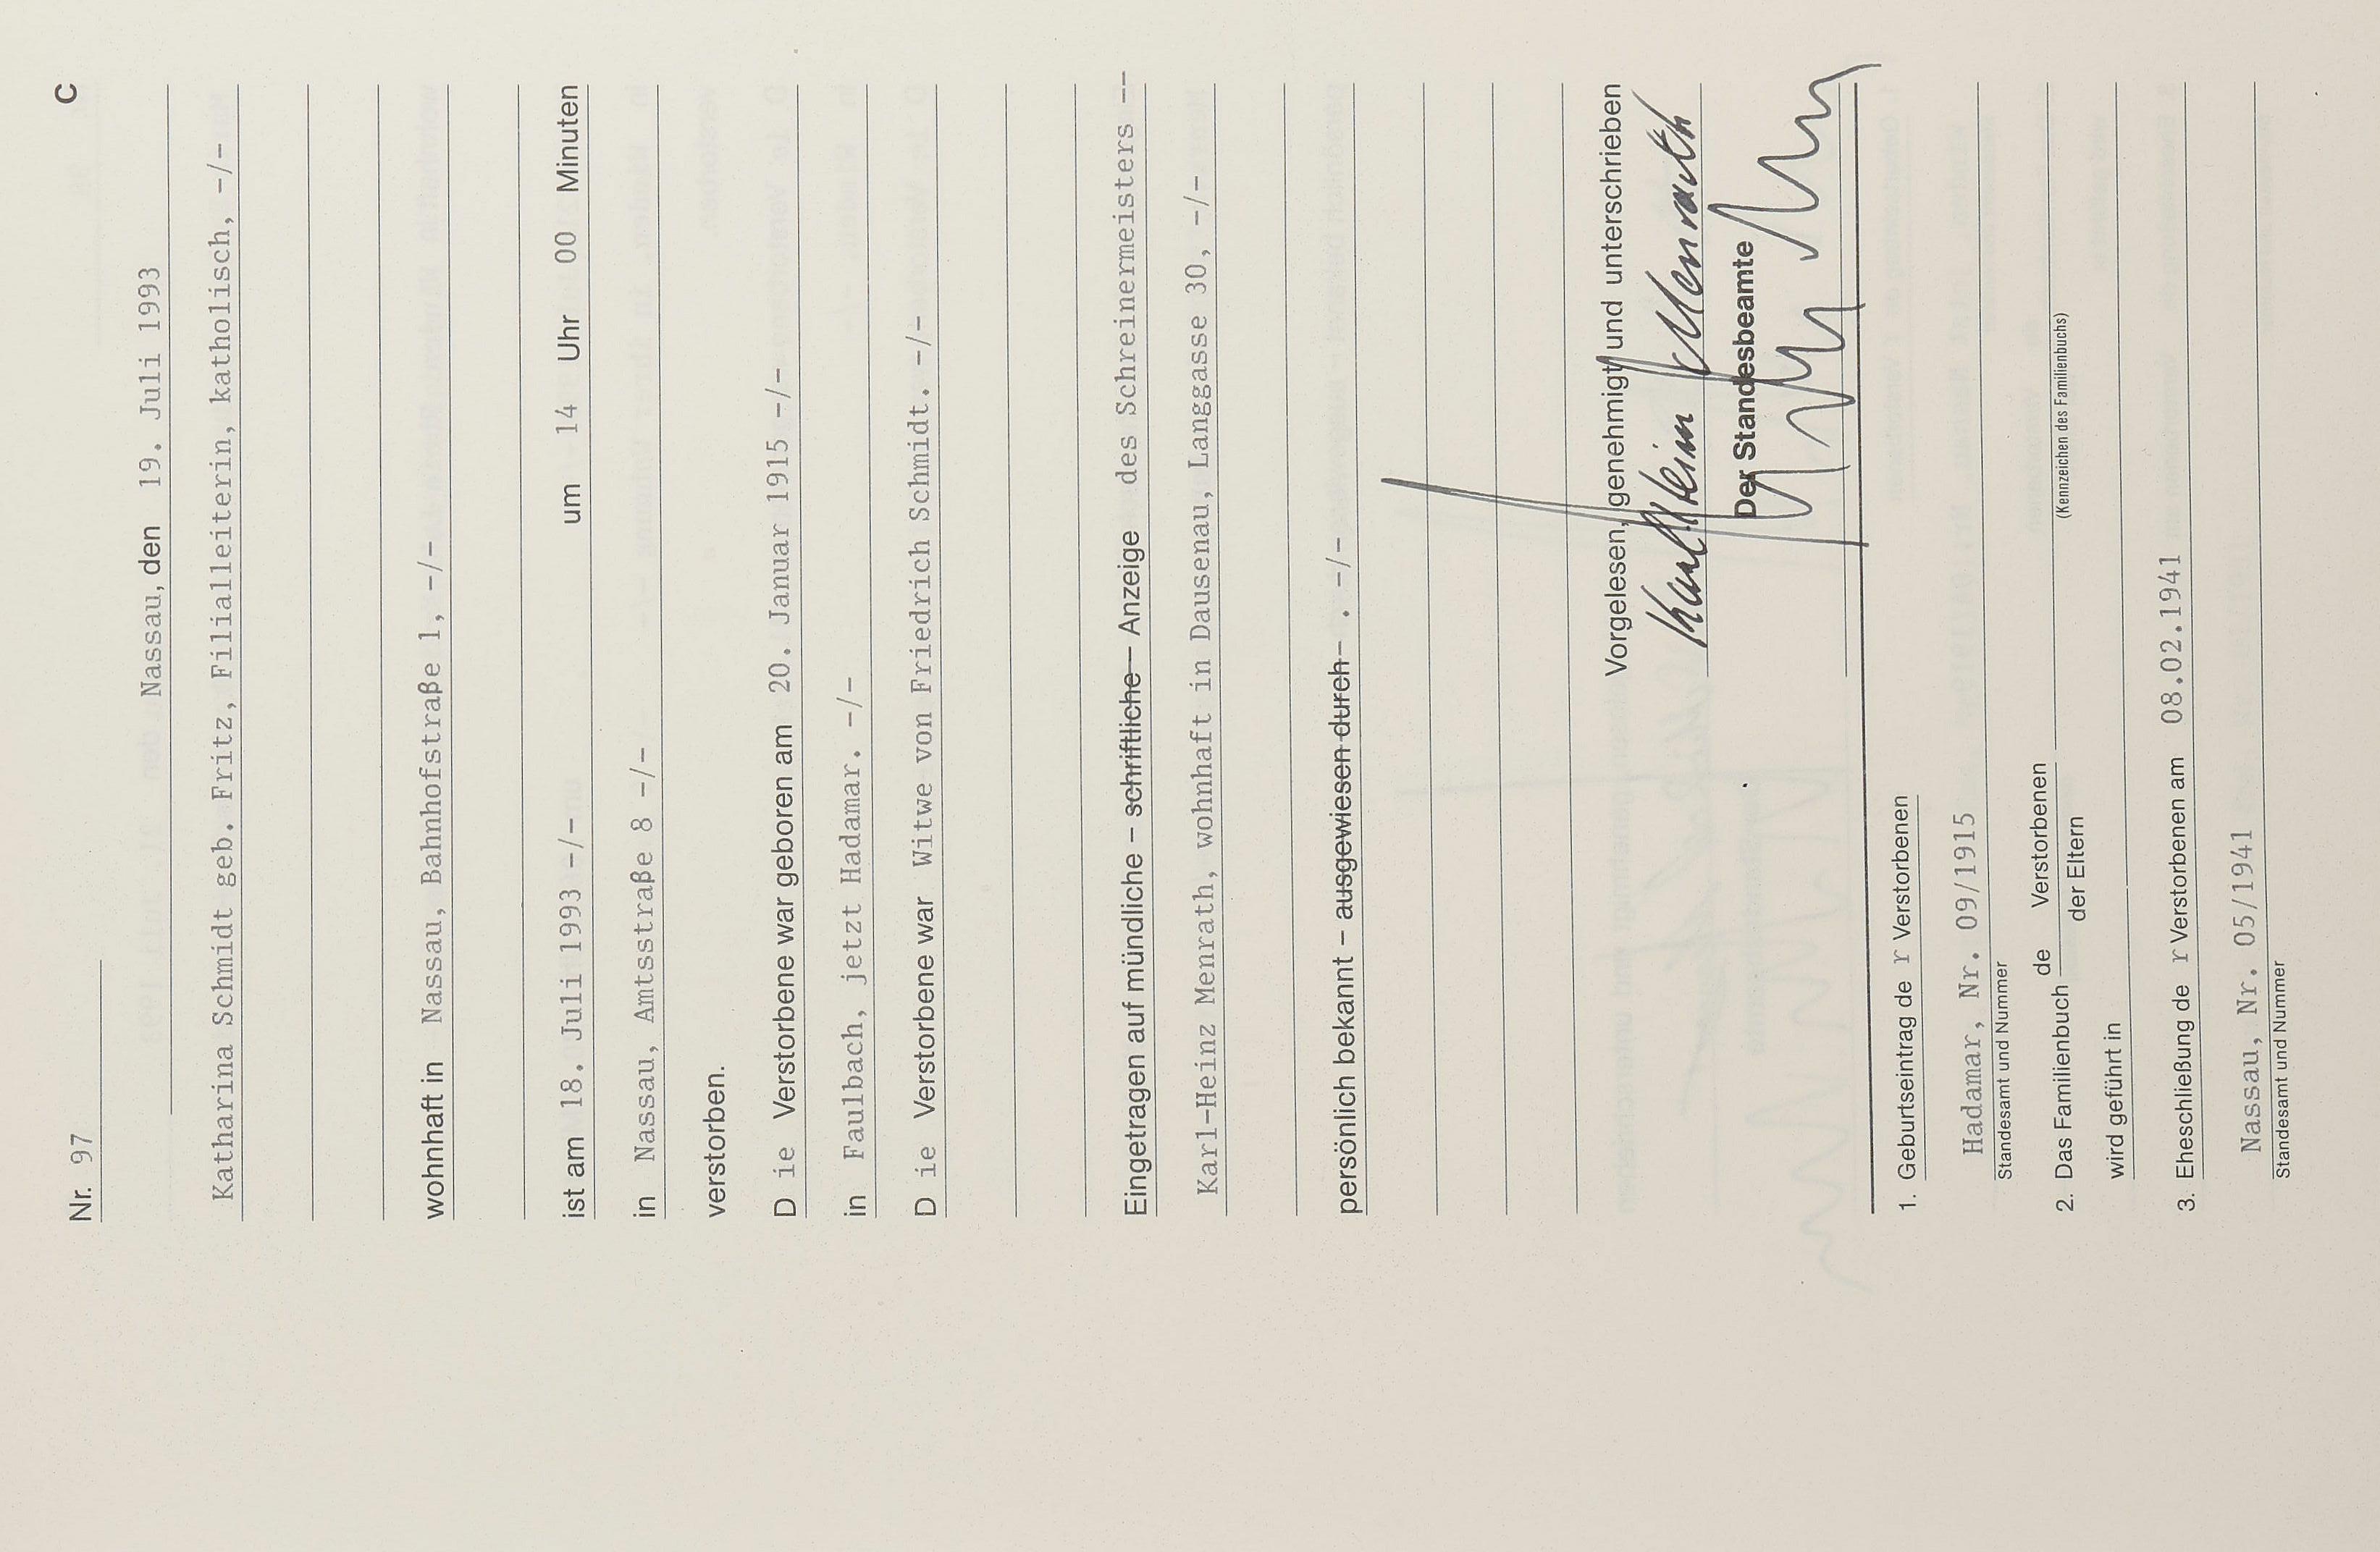 C
Nr. 97
Nassau, den 19. Juli 1993
Katharina Schmidt geb. Fritz, Filialleiterin, katholisch, -/-
wohnhaft in Nassau, Bahnhofstraße 1, -/-
ist am 18. Juli 1993 -/- um 14 Uhr 00 Minuten
in Nassau, Amtsstraße 8 -/-
verstorben.
D ie Verstorbene war geboren am 20. Januar 1915 -/-
in Faulbach, jetzt Hadamar. -/-
D ie Verstorbene war Witwe von Friedrich Schmidt. -/-
Eingetragen auf mündliche – schriftliche – Anzeige des Schreinermeisters --
Karl-Heinz Menrath, wohnhaft in Dausenau, Langgasse 30, -/-
persönlich bekannt – ausgewiesen durch – . -/-
Vorgelesen, genehmigt und unterschrieben
Karl Heinz Menrath
Der Standesbeamte
1. Geburtseintrag de r Verstorbenen
Hadamar, Nr. 09/1915
Standesamt und Nummer
2. Das Familienbuch de Verstorbenen
der Eltern
(Kennzeichen des Familienbuchs)
wird geführt in
3. Eheschließung de r Verstorbenen am 08.02.1941
Nassau, Nr. 05/1941
Standesamt und Nummer